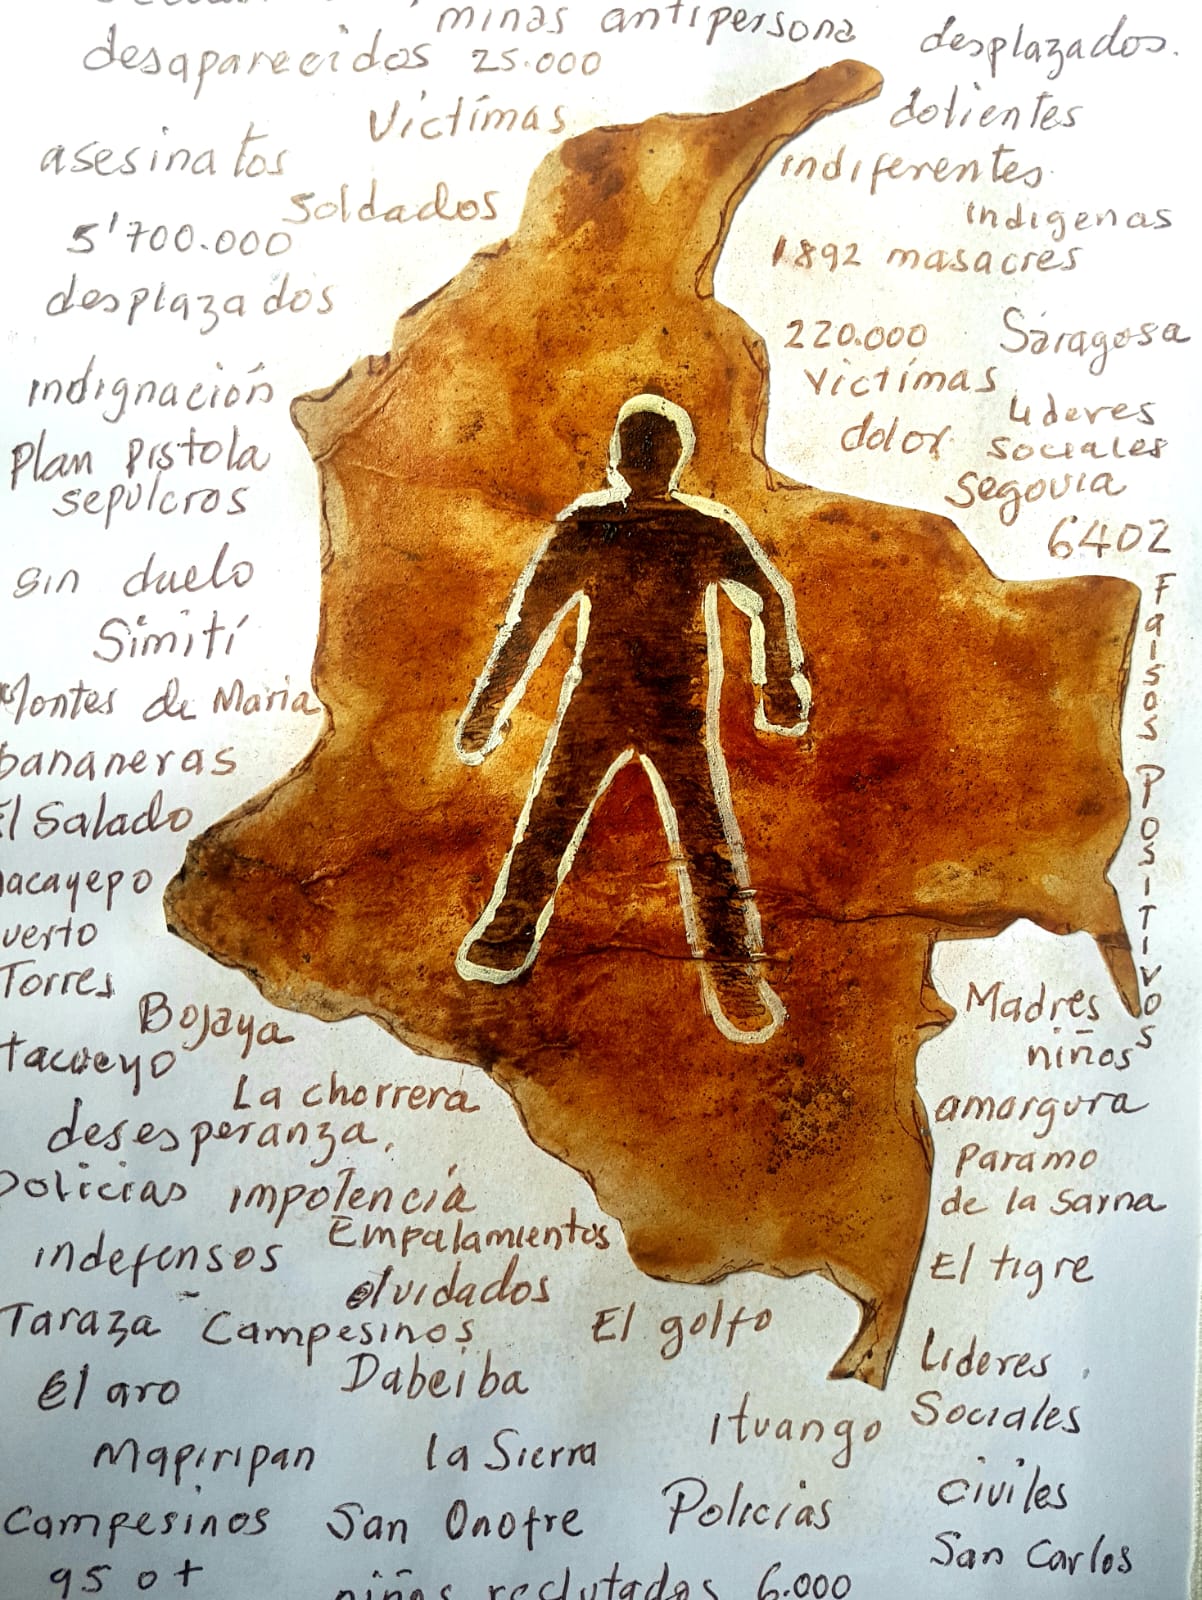 minas antipersona
desaparecidos 25.000
desplazados.
Víctimas
dolientes
asesinatos
indiferentes
soldados
indigenas
5'700.000
1892 masacres
desplazados
220.000
Saragosa
victimas
indignación
lideres
dolor
sociales
plan pistola
segovia
sepulcros
6402
Falsos Positivos
sin duelo
Simití
Montes de Maria
bananeras
El Salado
acayepo
uerto
Torres
Madres
Bojaya
niños
tacueyo
La chorrera
amargura
desesperanza.
paramo
policias impotencia
de la sarna
Empalamientos
indefensos
El tigre
olvidados
Taraza Campesinos
El golfo
Lideres
Dabeiba
El aro
Sociales
Ituango
Mapiripan
la Sierra
civiles
Campesinos
San Onofre
Policias
San Carlos
95 0+
niños reclutados 6.000